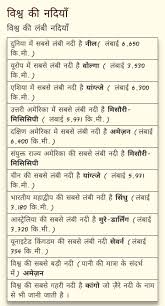 विश्व की नदियाँ
विश्व की लंबी नदियाँ
दुनिया में सबसे लंबी नदी है नील( लंबाई 6,650
कि.मी. )
यूरोप में सबसे लंबी नदी है वोल्गा ( लंबाई 3,530
कि.मी. )
एशिया में सबसे लंबी नदी है यांग्त्जे ( लंबाई 5,971
कि.मी. )
उत्तरी अमेरिका में सबसे लंबी नदी है मिसौरी-
मिसिसिपी ( लंबाई 5,971 कि.मी. )
दक्षिण अमेरिका में सबसे लंबी नदी है अमेज़न ( लंबाई
6,400 कि.मी. )
संयुक्त राज्य अमेरिका की सबसे लंबी नदी है मिसौरी-
मिसिसिपी
चीन की सबसे लंबी नदी है यांग्त्जे ( लंबाई 5,971
कि.मी. )
भारतीय महाद्वीप की सबसे लंबी नदी है सिंधु ( लंबाई
कि.मी. )
आस्ट्रेलिया की सबसे लंबी नदी है मुरे-डार्लिंग ( लंबाई
2,320 कि.मी. )
यूनाइटेड किंगडम की सबसे लंबी नदी सेवर्न ( लंबाई
354 कि.मी. )
विश्व की सबसे बड़ी नदी ( पानी की मात्रा के संदर्भ
में) अमेज़न
विश्व की सबसे गहरी नदी है कांगो जो जैरे नदी के नाम
से भी जानी जाती है ।